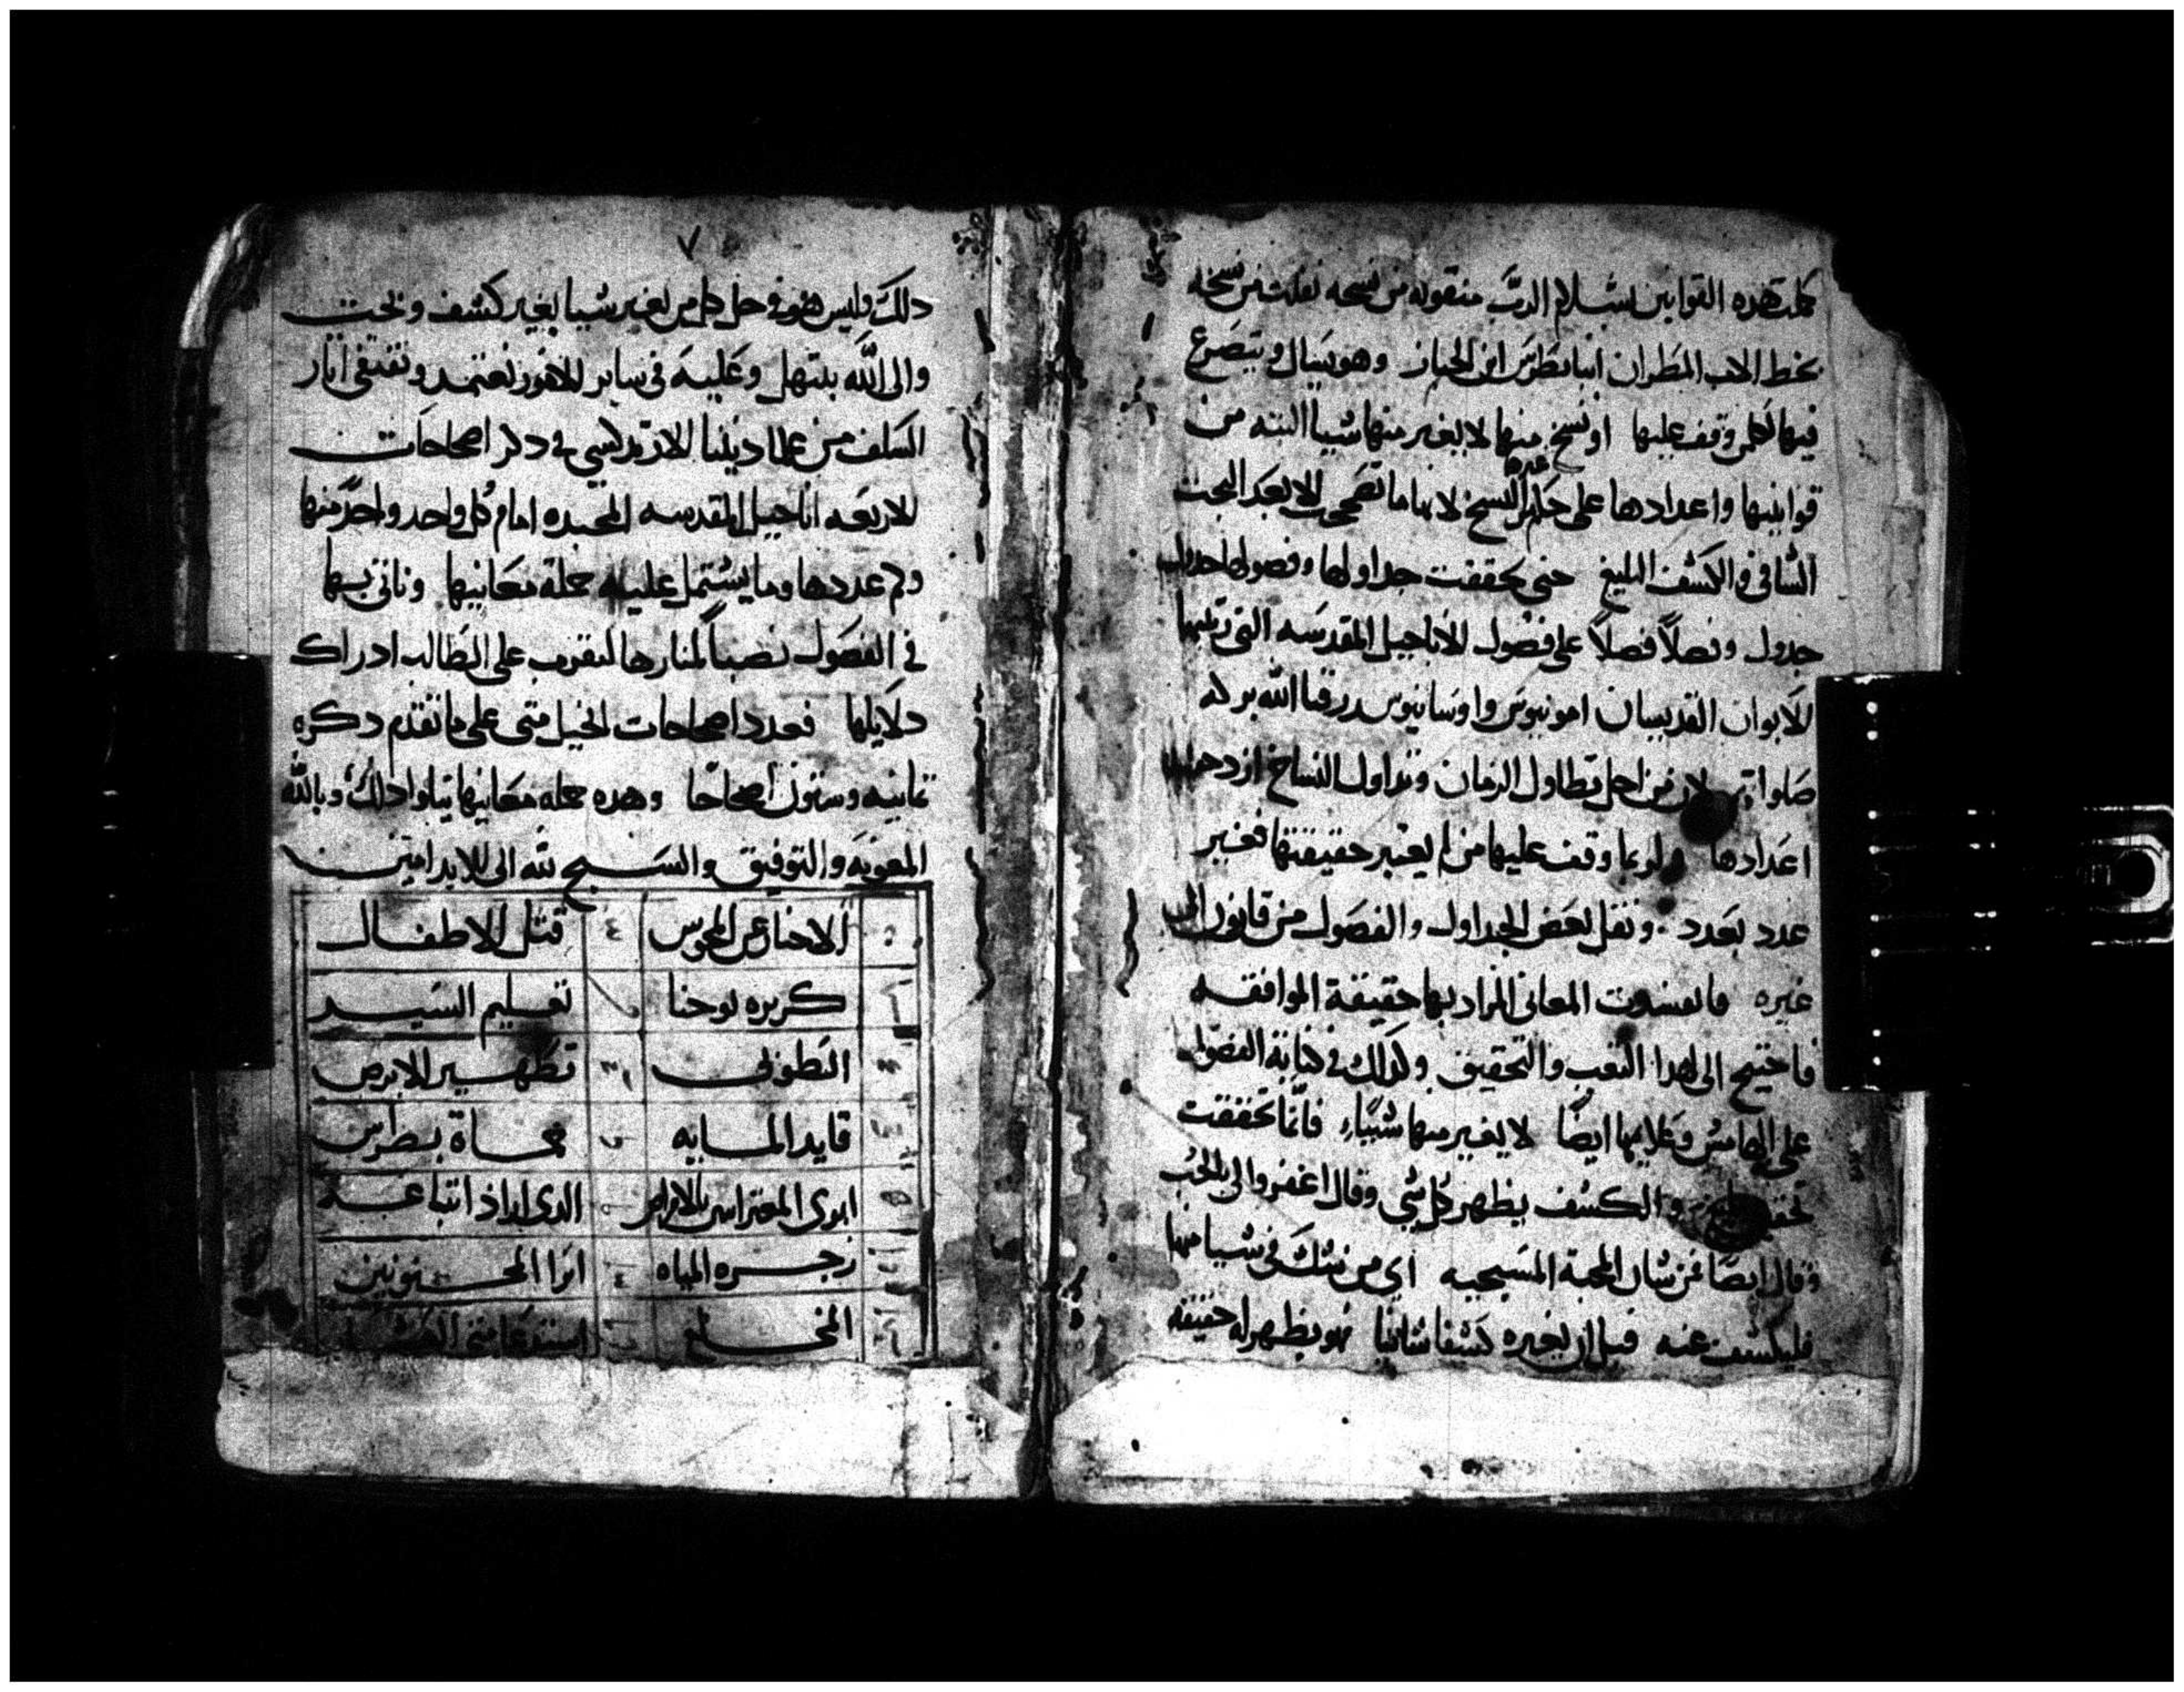 كملت هده القوانين بسلام الرب منقوله من نسخه نقلت من نسخه
بخط الاب المطران انبا بطرس ابن الخباز وهو يسال ويتضرع
فيها لكلمن وقف عليها او نسخ منها لا يغير منها شيا البته من
قوانينها واعدادها على حكم النسخ غيرها لانها ما تصححت الا بعد البحث
الشافي والكشف البليغ حتى تحققت جداولها وفصولها جدول
جدول وفصلاً فصلاً على فصول الاناجيل المقدسه التي رتبها
الابوان القديسان امونيوس واوسانيوس رزقنا الله بركه
صلواتهم لان من اجل تطاول الزمان وتداول النساخ
اعدادها ولربما وقف عليها من لم يعتبر حقيقتها فغير
عدد بعدد ونقل بعض الجداول والفصول من قانون الى
غيره فانفسدت المعاني المراد بها حقيقة الموافقه
فاحتيج الى هدا التعب والتحقيق وكدلك في كتابة الفصول
على الهامش وعلايمها ايضاً لا يغير منها شيياً فانما تحققت
والكشف يظهر كل شي وقال اغفروا لي بالحب
وقال ايضا عن شان المحبة المسيحيه اي من شك في شيا منها
فليكشف عنه قبل ان يغيره كشفا شافيا فهو يظهر له حقيقة
٧
دلك وليس هو في حل كل من يغير شيا بغير كشف وبحث
والى الله نبتهل وعليه في ساير الامور نعتمد ونقتفي اثار
السلف من علما ديننا الارتدكسي في دكر اصحاحات
الاربعه اناجيل المقدسه المجيده امام كل واحد واحد منها
وكم عددها وما يشتمل عليه جملة معانيها وناتي بها
في الفصول نصباً لمنارها لتقرب على الطالب ادراك
دلايلها فعدد اصحاحات انجيل متى على ما تقدم دكره
ثمانيه وستون اصحاحا وهده جمله معانيها يتلوا دلك وبالله
المعونه والتوفيق والسبح لله الى الابد امين
الاخبار عن المجوس ٤ قتل الاطفال
كريزه يوحنا تعليم السيد
الطوبى تطهير الابرص
قايد المايه حماة بطرس
ابرى المعتراين بالامراض الدى اراد اتباعه
زجره المياه ابرا المجنونين
المخلع